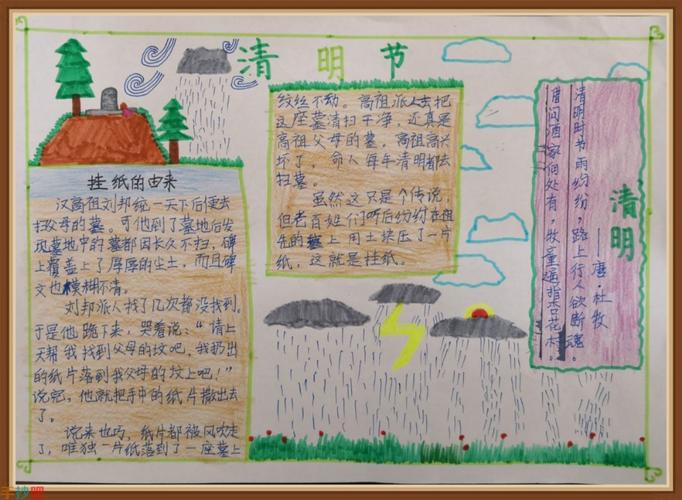 清明节
挂纸的由来
汉高祖刘邦统一天下后便去
扫父母的墓。可他到了墓地后发
现墓地中的墓都因长久不扫，碑
上覆盖上了厚厚的尘土，而且碑
文也模糊不清。
刘邦派人找了几次都没找到。
于是他跪下来，哭着说：“请上
天帮我找到父母的坟吧，我扔出
的纸片落到我父母的坟上吧！”
说完，他就把手中的纸片撒出去
了。
说来也巧，纸片都被风吹走
了，唯独一片纸落到了一座墓上
纹丝不动。高祖派人去把
这座墓清扫干净，还真是
高祖父母的墓，高祖高兴
坏了，命人每年清明都去
扫墓。
虽然这只是个传说，
但老百姓们听后纷纷在祖
先的墓上用土块压了一片
纸，这就是挂纸。
清明
——唐·杜牧
清明时节雨纷纷，路上行人欲断魂。
借问酒家何处有，牧童遥指杏花村。
手抄吧